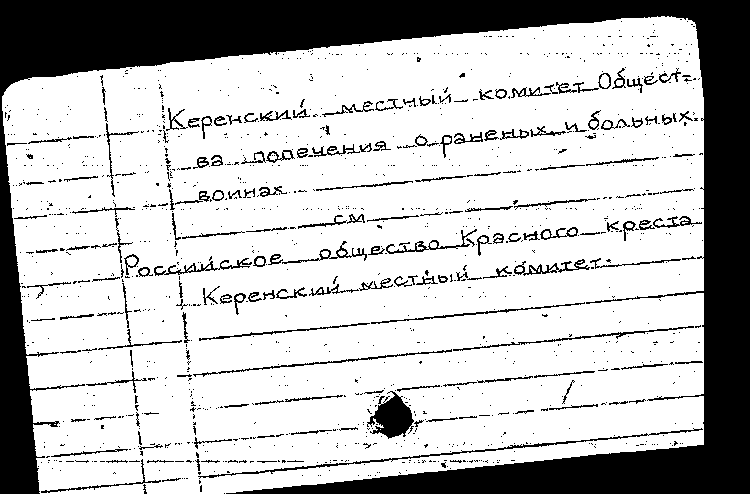 Керенский местный комитет Общест=
ва попечения о раненых и больных
воинах
см
Российское общество Красного креста
Керенский местный комитет.